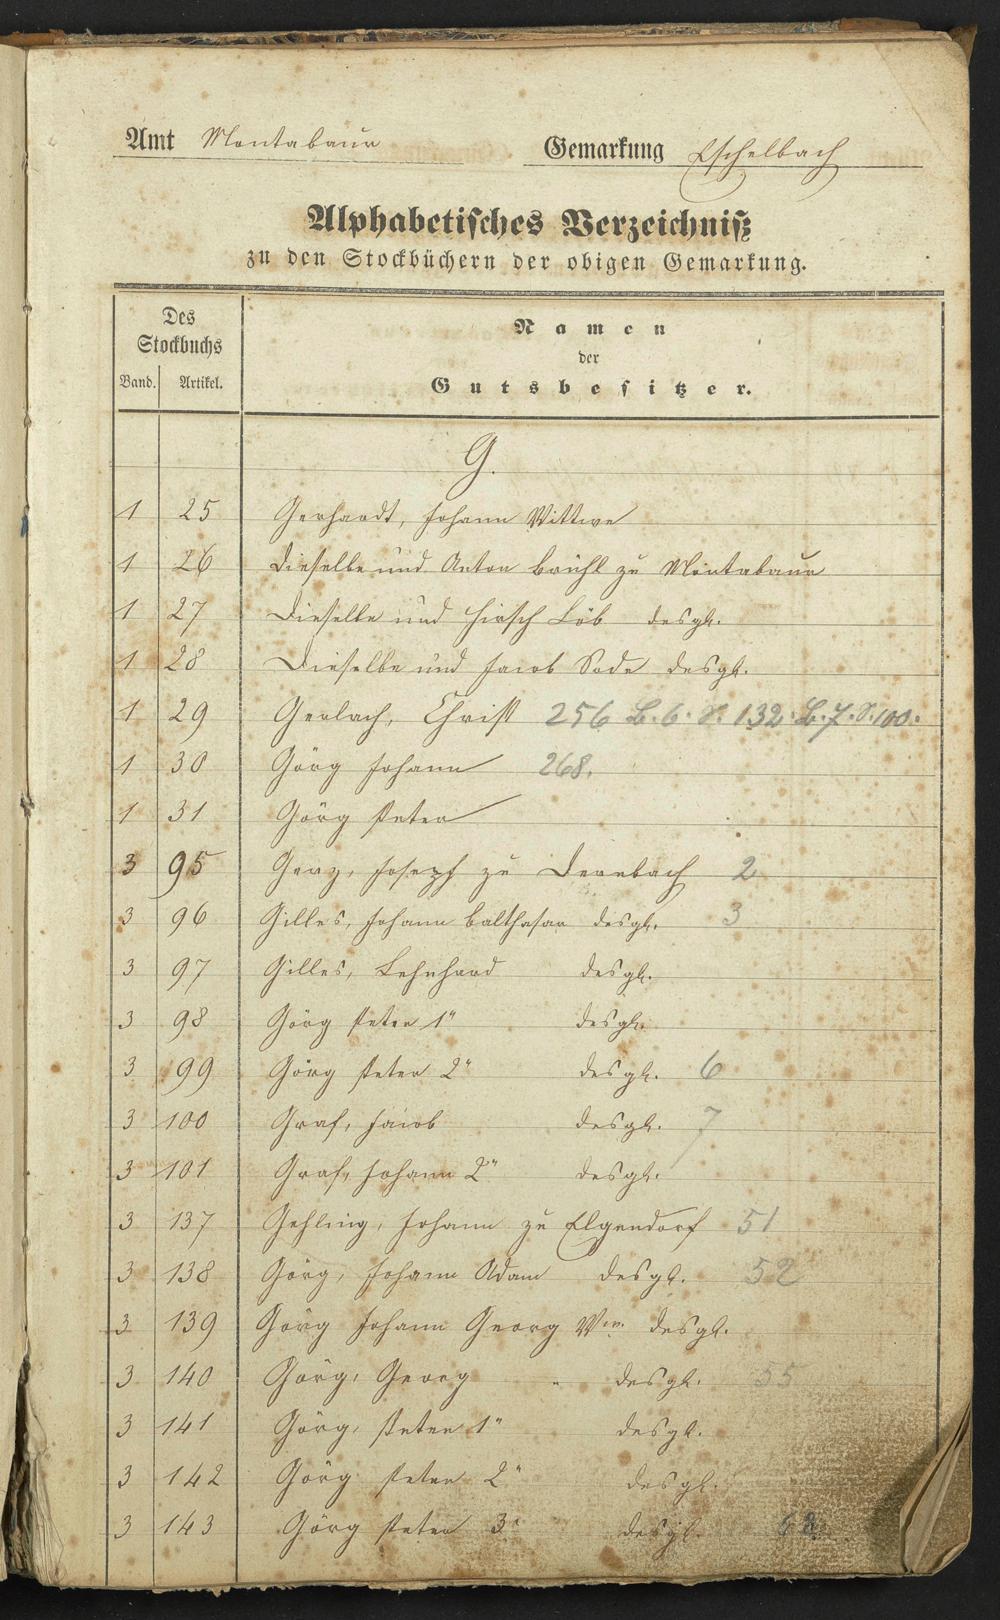 Amt Montabaur Gemarkung Eschelbach
Alphabetisches Verzeichniß
zu den Stockbüchern der obigen Gemarkung.
Des Stockbuchs
Band. Artikel.
Namen
der
Gutsbesitzer.
G.
1 25 Gerhardt, Johann Wittwe
1 26 Dieselbe und Anton Brühl zu Montabaur
1 27 Dieselbe und Hirsch Löb desgl.
1 28 Dieselbe und Jacob Sode desgl.
1 29 Gerlach, Christ 256 B. 6. S. 132. B. 7. S. 100.
1 30 Görg Johann 268.
1 31 Görg Peter
3 95 Gerz, Joseph zu Dernbach 2
3 96 Gilles, Johann Balthasar desgl. 3
3 97 Gilles, Lehnhard desgl.
3 98 Görg Peter 1r desgl.
3 99 Görg Peter 2r desgl. 6
3 100 Graf, Jacob desgl. 7
3 101 Graf, Johann 2r desgl.
3 137 Gehling, Johann zu Elgendorf 51
3 138 Görg, Johann Adam desgl. 52
3 139 Görg Johann Georg Ww. desgl.
3 140 Görg, Georg desgl. 55
3 141 Görg, Peter 1r desgl.
3 142 Görg Peter 2r desgl.
3 143 Görg Peter 3r desgl.